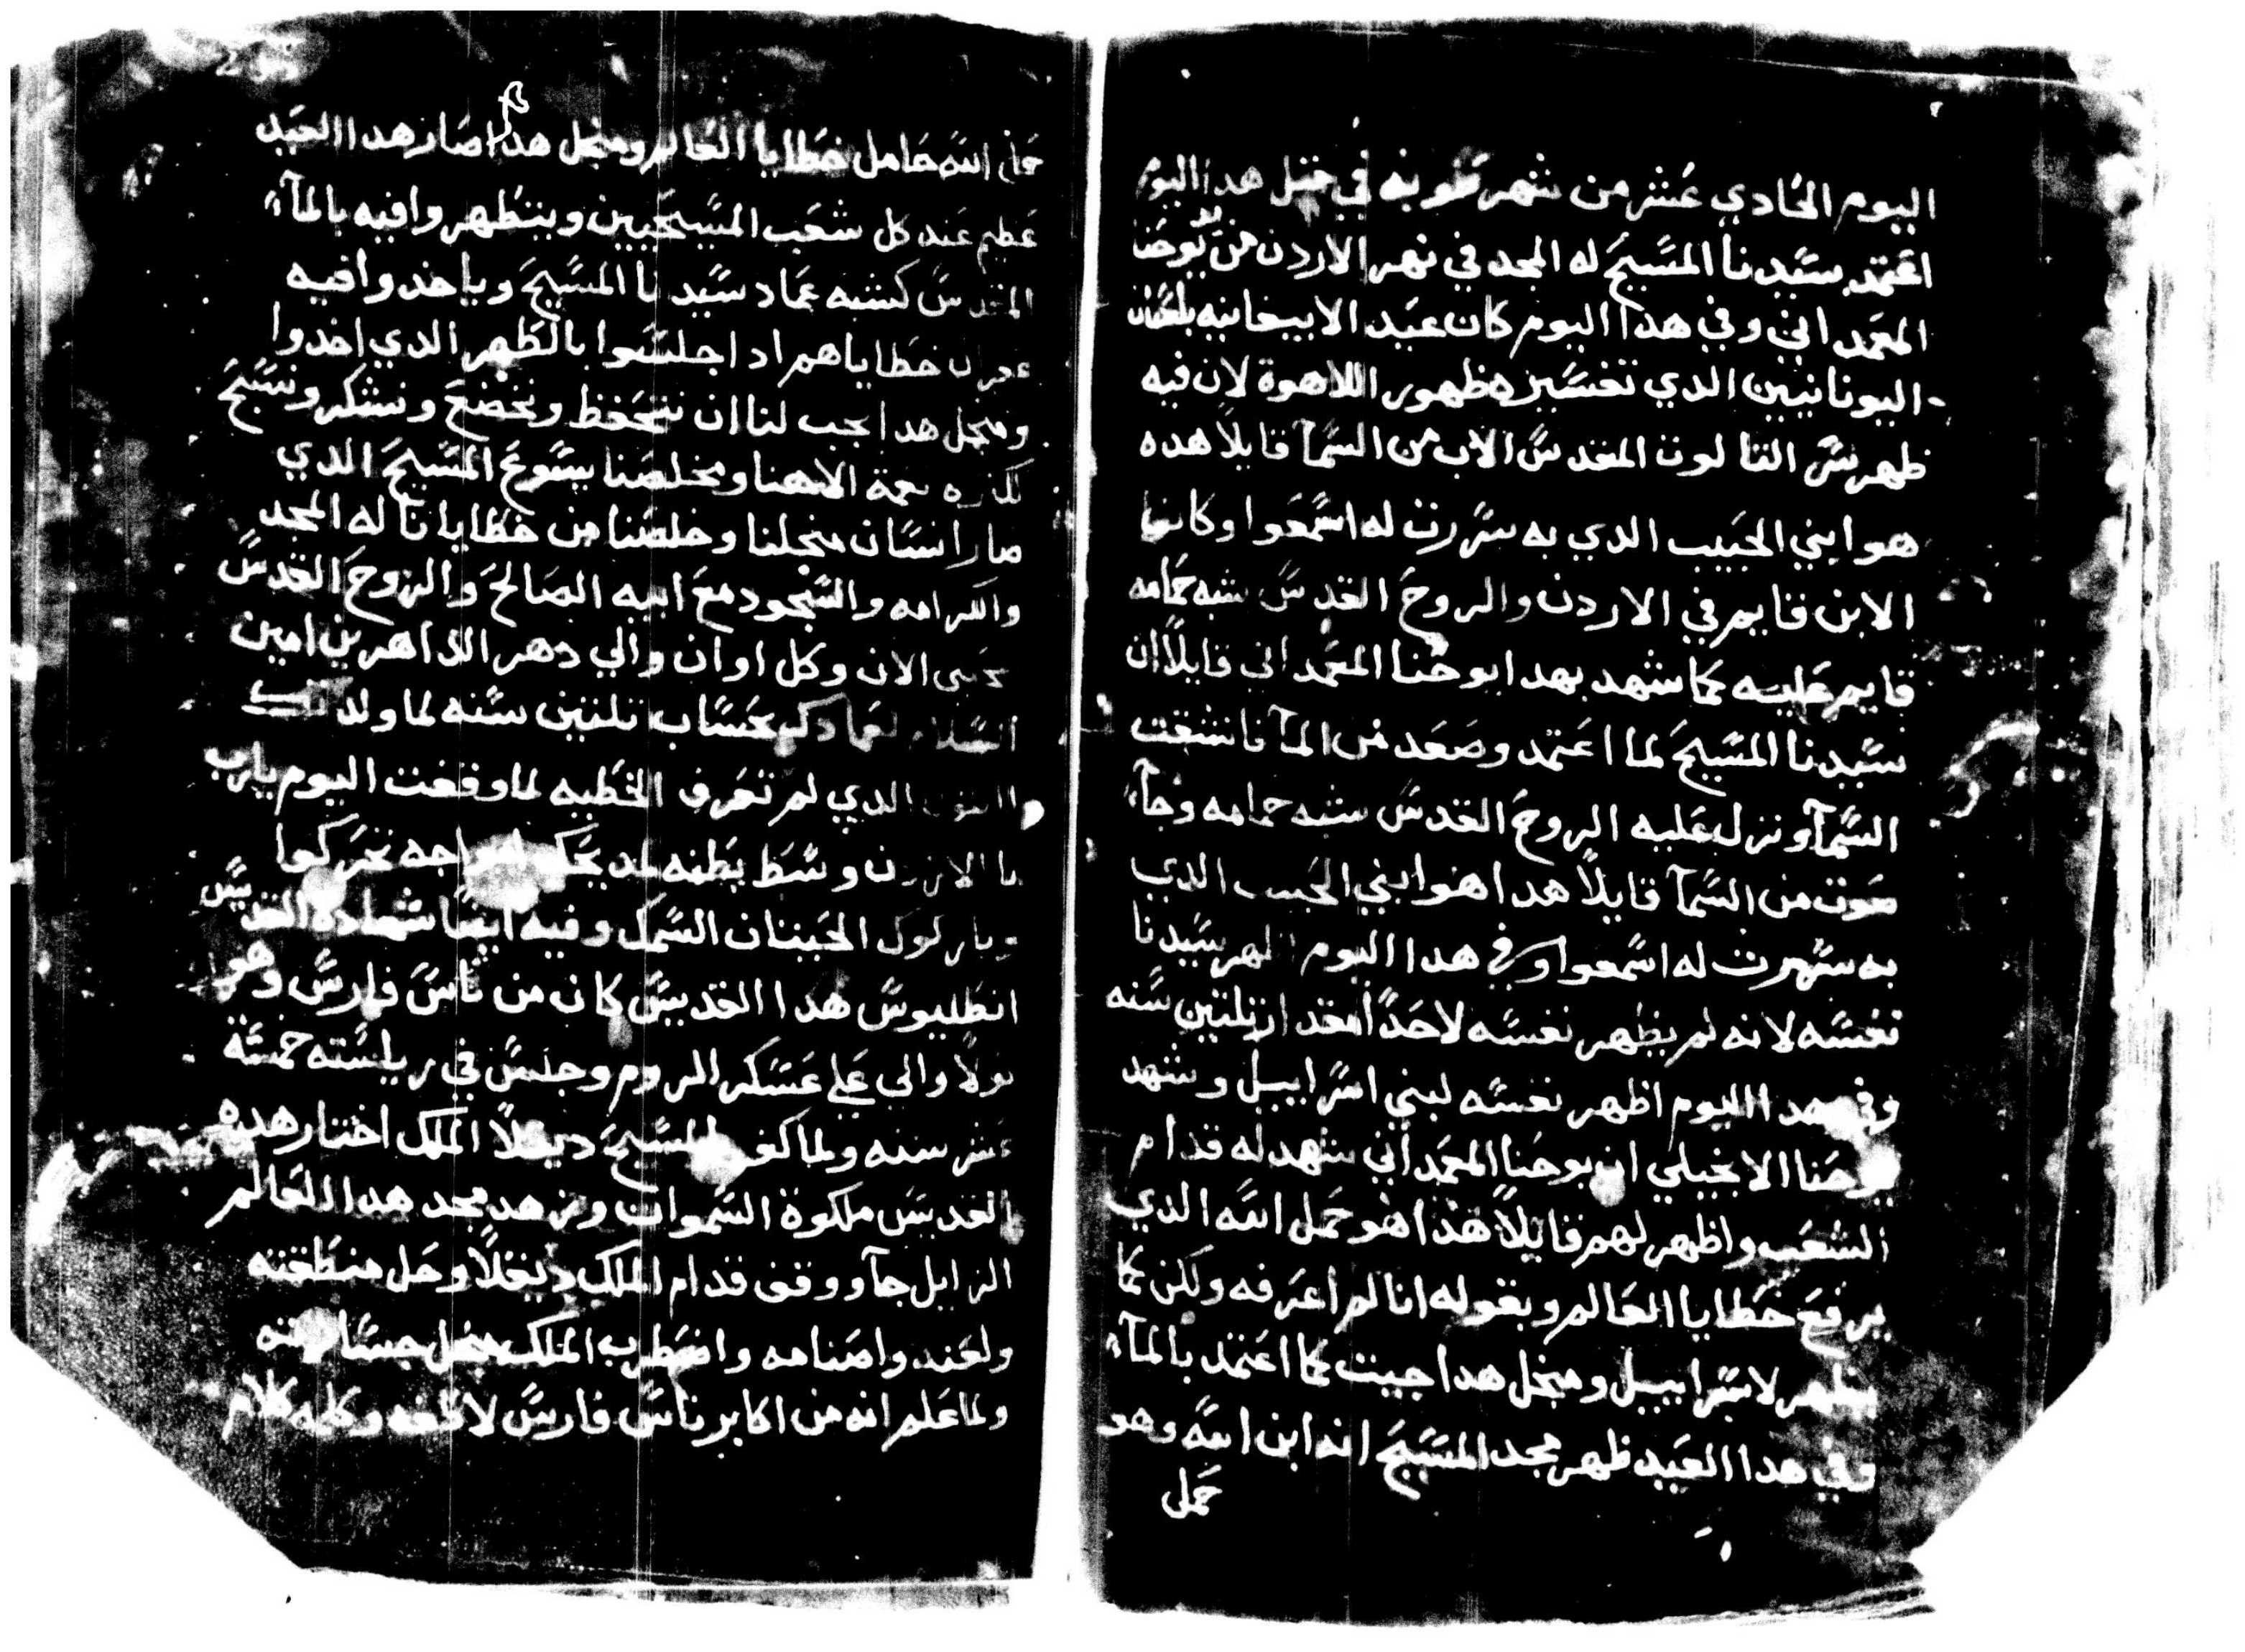 اليوم الحادي عشر من شهر طوبه في مثل هدا اليوم
اعتمد سيدنا المسيح له المجد في نهر الاردن من يد يوحنا
المعمداني وفي هدا اليوم كان عيد الابيفانيه بلسان
اليونانيين الدي تفسيره ظهور اللاهوة لان فيه
ظهر سر التالوت المقدس الاب من السما قايلاً هده
هو ابني الحبيب الدي به سررت له اسمعوا وكان
الابن قايم في الاردن والروح القدس شبه حمامه
قايم عليه كما شهد بهدا يوحنا المعمداني قايلاً ان
سيدنا المسيح لما اعتمد وصعد من الما فانشقت
السما ونزل عليه الروح القدس شبه حمامه وجا
صوت من السما قايلاً هدا هو ابني الحبيب الدي
به سررت له اسمعوا وفي هدا اليوم اظهر سيدنا
نفسه لانه لم يظهر نفسه لاحداً مقدار تلتين سنه
وفي هدا اليوم اظهر نفسه لبني اسراييل وشهد
يوحنا الانجيلي ان يوحنا المعمداني شهد له قدام
الشعب واظهر لهم قايلاً هدا هو حمل الله الدي
يرفع خطايا العالم وبقوله انا لم اعرفه ولكن كما
يظهر لاسراييل ومنجل هدا جيت كما اعتمد بالما
وفي هدا العيد ظهر مجد المسيح انه ابن الله وهو
حمل
حمل الله حامل خطايا العالم ومنجل هدا صار هدا العيد
عظيم عند كل شعب المسيحيين ويتطهروا فيه بالما
المقدس كشبه عماد سيدنا المسيح وياخدوا فيه
غفران خطاياهم ادا جلسوا بالطهر الدي اخدوا
ومنجل هدا يجب لنا ان نتحفظ ونخضع ونشكر ونسبح
لكثره نعمة الاهنا ومخلصنا يسوع المسيح الدي
صار انسان منجلنا وخلصنا من خطايانا له المجد
والكرامه والسجود مع ابيه الصالح والروح القدس
الان وكل اوان والي دهر الداهرين امين
السلام لعمادك بحساب تلتين سنه لما ولدتك
البتول الدي لم تعرف الخطيه لما وقفت اليوم يارب
الاردن وسط بطنه تحركوا
الحيتان السمك وفيه ايضاً شهادة القديس
انطليوس هدا القديس كان من ناس فارس وهو
والي علي عسكر الروم وجلس في رياسته خمسة
عشر سنه ولما كفر بالمسيح ديقلاً الملك اختار هده
القديس ملكوة السموات وزهد مجد هدا العالم
الزايل جا ووقف قدام الملك ديقلاً وحل منطقته
ولعنه واصنامه واضطرب الملك منجل
ولما علم انه من اكابر ناس فارس لاطفه وكلمه كلام